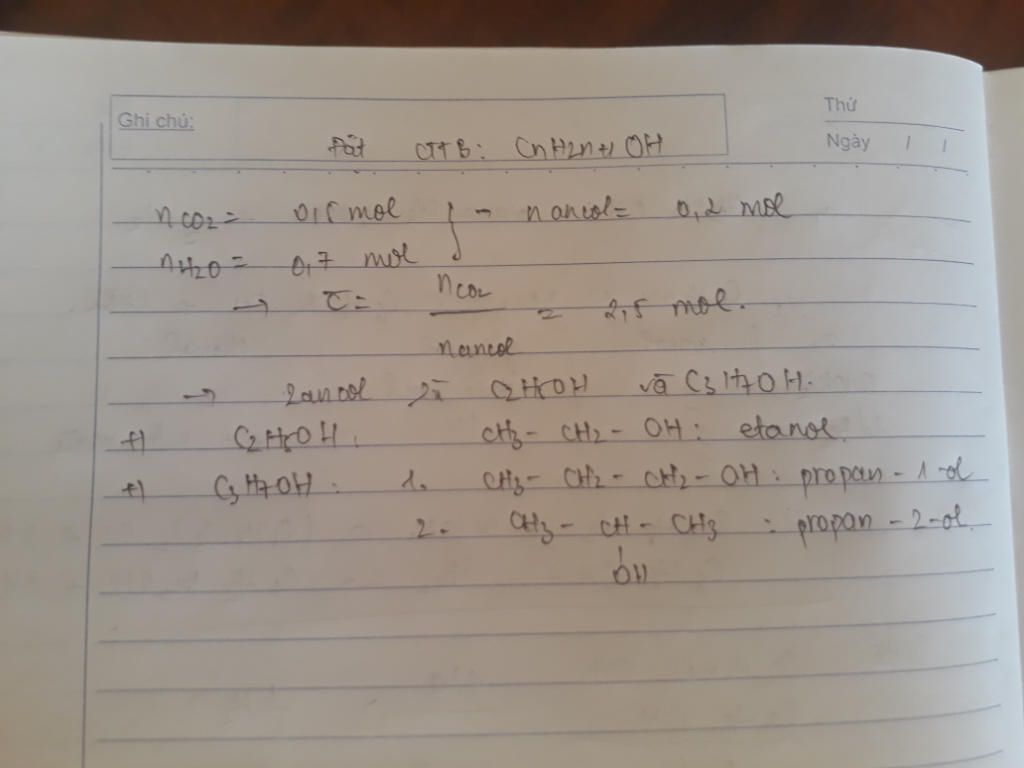 Ghi chú:
Thứ
Ngày / /
Đặt CTTB: CnH2n+1 OH
nCO2 = 0,5 mol } → n ancol = 0,2 mol
nH2O = 0,7 mol
→ C̅ = nCO2 / nancol = 2,5 mol.
→ 2 ancol là C2H5OH và C3H7OH.
+) C2H5OH: CH3 - CH2 - OH: etanol.
+) C3H7OH: 1. CH3 - CH2 - CH2 - OH: propan - 1-ol
2. CH3 - CH - CH3 : propan - 2-ol.
OH